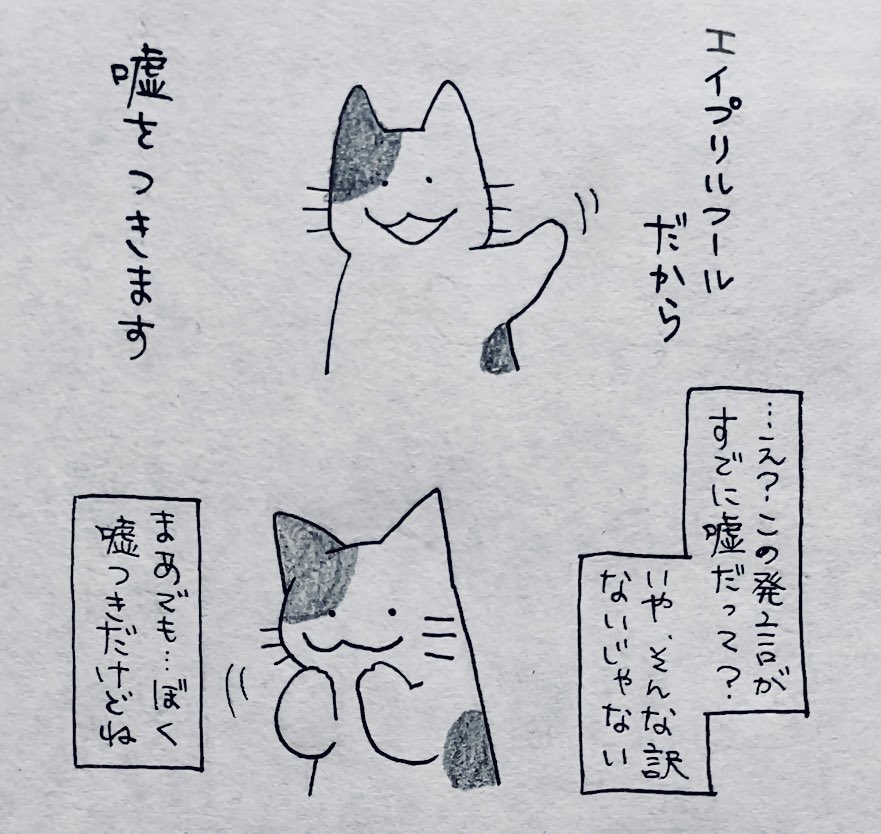 エイプリルフール
だから
嘘をつきます
…え?この発言が
すでに嘘だって?
いや、そんな訳
ないじゃない
まあでも…ぼく
嘘つきだけどね